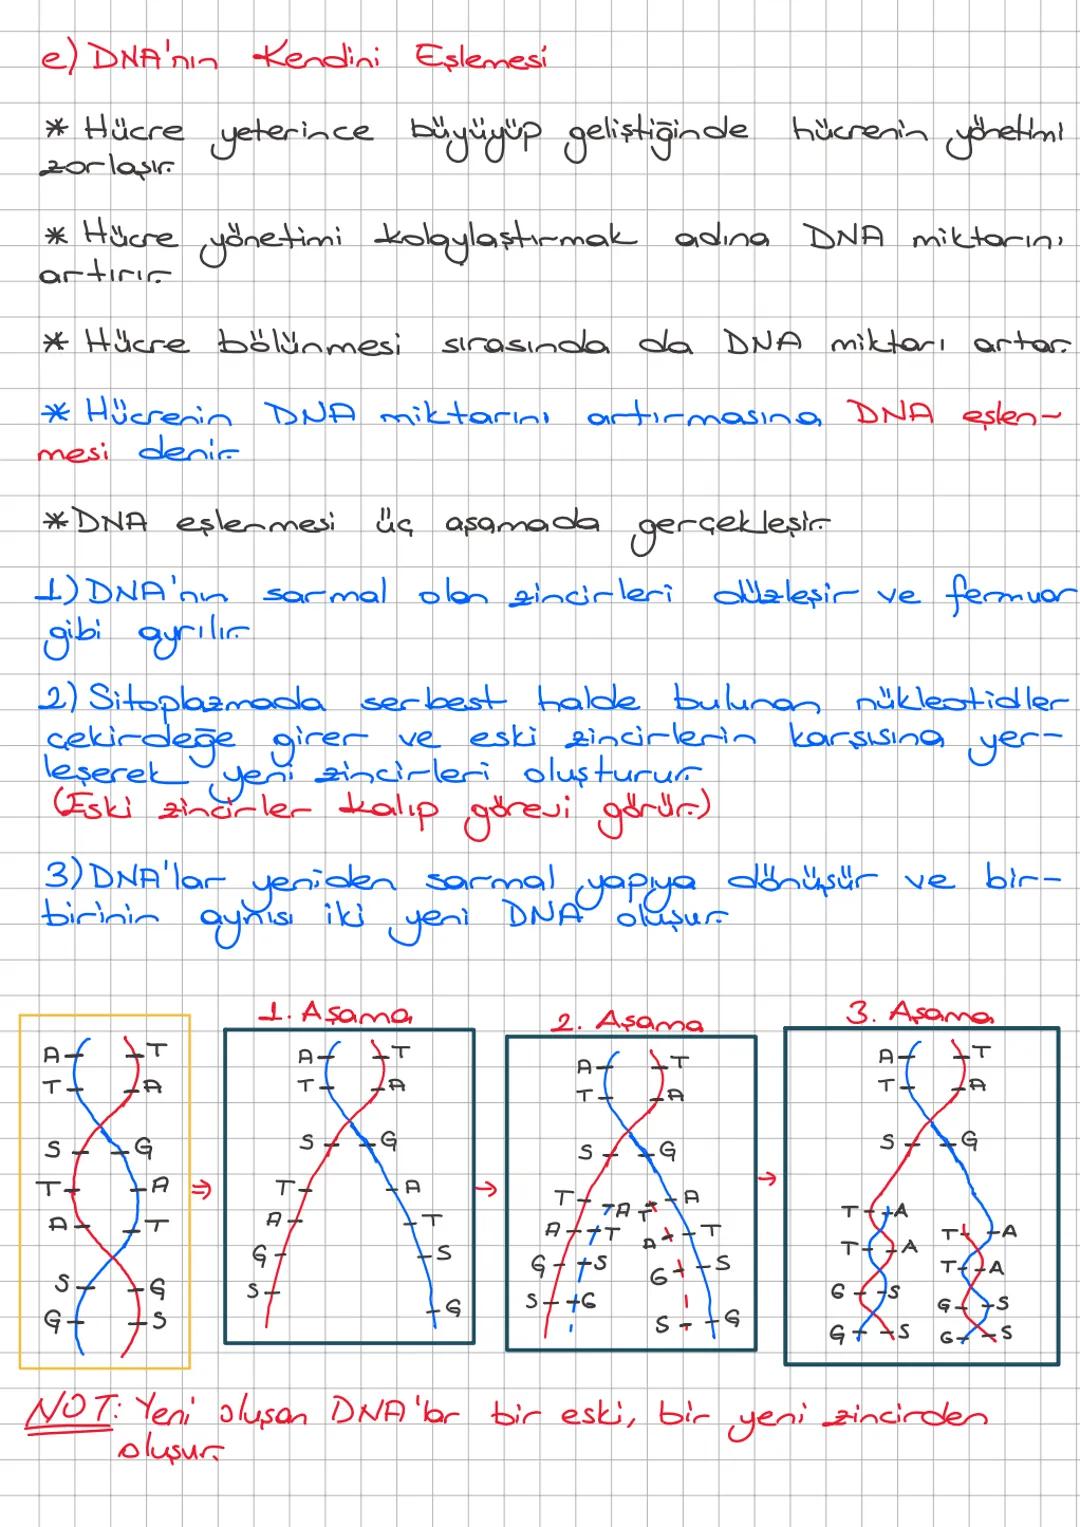 e) DNA'nın Kendini Eşlemesi
* Hücre yeterince büyüyüp geliştiğinde hücrenin yönetimi
zorlaşır.
* Hücre yönetimi kolaylaştırmak adına DNA miktarını
artırır.
* Hücre bölünmesi sırasında da DNA miktarı artar.
* Hücrenin DNA miktarını artırmasına DNA eşlen-
mesi denir.
* DNA eşlenmesi üç aşamada gerçekleşir.
1) DNA'nın sarmal olan zincirleri düzleşir ve fermuar
gibi ayrılır.
2) Sitoplazmada serbest halde bulunan nükleotidler
çekirdeğe girer ve eski zincirlerin karşısına yer-
leşerek yeni zincirleri oluşturur.
(Eski zincirler kalıp görevi görür.)
3) DNA'lar yeniden sarmal yapıya dönüşür ve bir-
birinin aynısı iki yeni DNA oluşur.
1. Aşama
2. Aşama
3. Aşama
A T
T A
S G
T A
A T
S G
G S
A T
T A
S G
T A
A T
G S
S G
A T
T A
S G
T A T A
A T A T
G S G S
S G S G
A T
T A
S G
T A T A
T A T A
G S G S
G S G S
NOT: Yeni oluşan DNA'lar bir eski, bir yeni zincirden
oluşur.